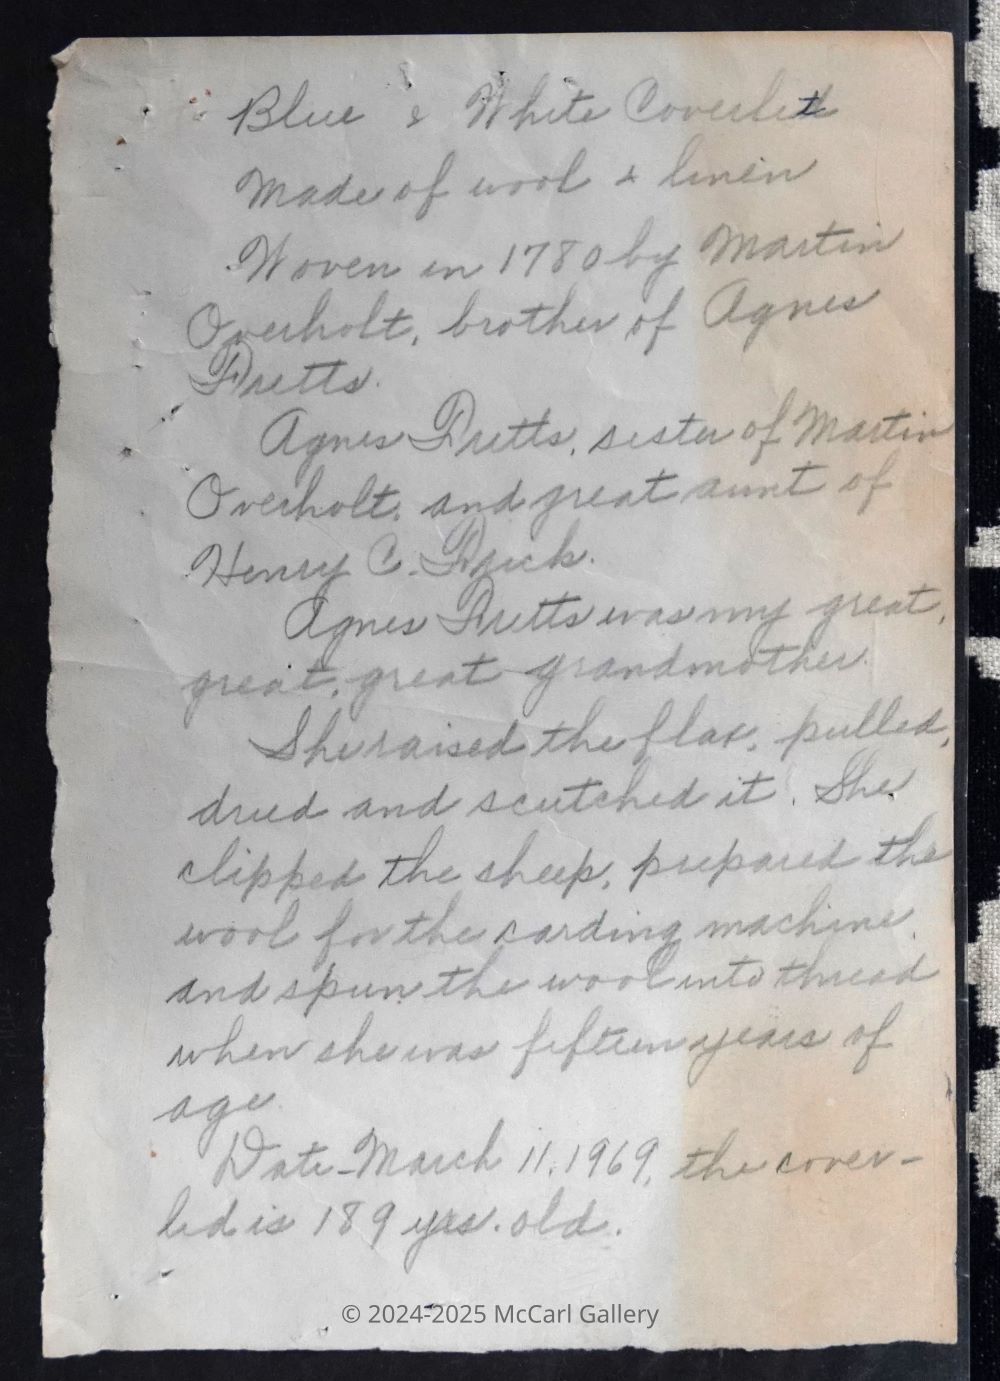 Blue & White Coverlet
Made of wool & linen
Woven in 1780 by Martin
Overholt, brother of Agnes
Fretts.
Agnes Fretts, sister of Martin
Overholt, and great aunt of
Henry C. Frick.
Agnes Fretts was my great,
great, great grandmother.
She raised the flax, pulled,
dried and scutched it. She
clipped the sheep, prepared the
wool for the carding machine
and spun the wool into thread
when she was fifteen years of
age.
Date-March 11, 1969, the cover-
led is 189 yrs. old.
© 2024-2025 McCarl Gallery